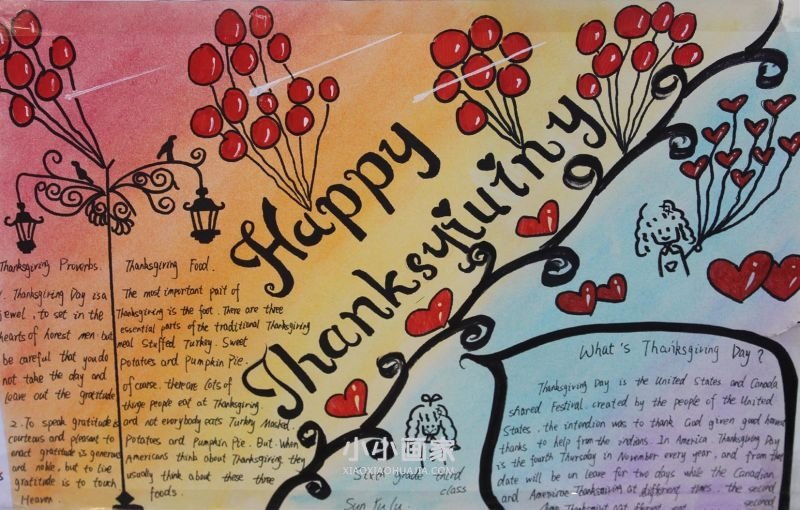 Happy
Thanksyiuiny
Thanksgiving Proverbs.
1. Thanksgiving Day is a
jewel, to set in the
hearts of honest men but
be careful that you do
not take the day and
leave out the gratitude
2. To speak gratitude is
courteous and pleasant to
enact gratitude is generous
and noble, but to live
gratitude is to touch
Heaven.
Thanksgiving Food.
The most important part of
Thanksgiving is the foot. There are three
essential parts of the traditional Thanksgiving
meal Stuffed Turkey. Sweet
Potatoes and Pumpkin Pie.
of course. there are lots of
things people eat at Thanksgiving.
and not everybody eats Turkey Mashed
Potatoes and Pumpkin Pie. But. When
Americans think about Thanksgiving they
usually think about these three
foods.
What's Thanksgiving Day?
Thanksgiving Day is the United States and Canada
shared Festival. created by the people of the United
States. the intention was to thank God given good
thanks to help from the indians. In America. Thanksgiving Day
is the fourth Thursday in November every year. and from that
date will be on leave for two days while the Canadian
and Thanksgiving at different times. the second
second
Sixth grade third
class
Sun
小小画家
XIAOXIAOHUAJIA.COM